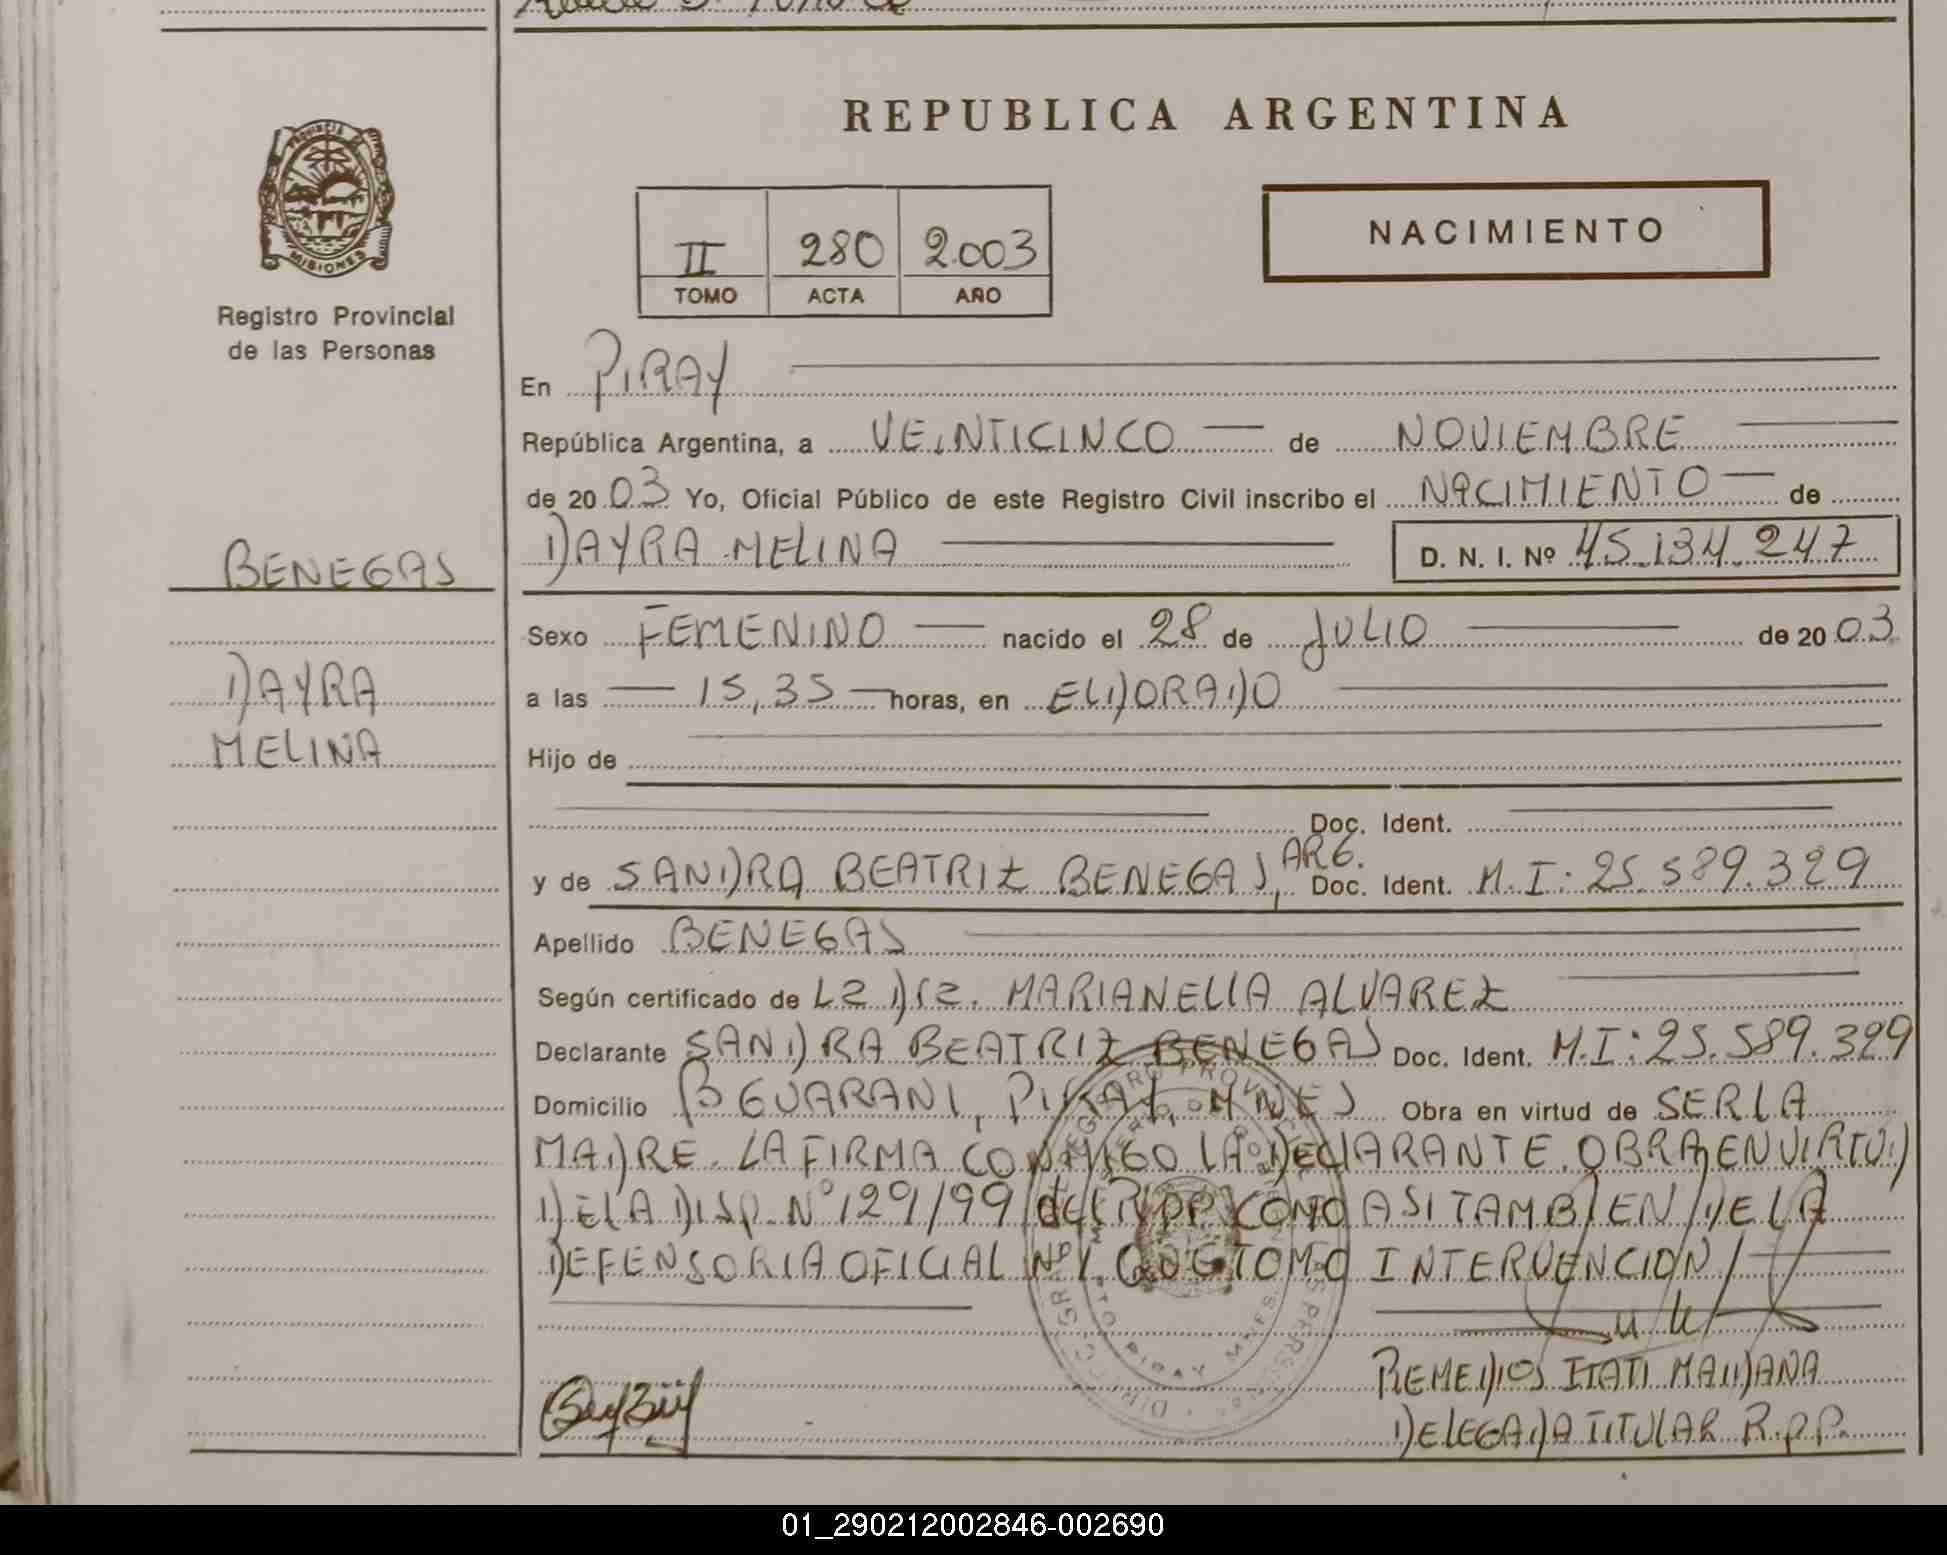 REPUBLICA ARGENTINA
PROVINCIA DE MISIONES
Registro Provincial
de las Personas
II 280 2.003
TOMO ACTA AÑO
NACIMIENTO
En PIRAY
República Argentina, a VEINTICINCO de NOVIEMBRE
de 2003 Yo, Oficial Público de este Registro Civil inscribo el NACIMIENTO de
BENEGAS
DAYRA MELINA D. N. I. Nº 45.134.247
Sexo FEMENINO nacido el 28 de JULIO de 2003
DAYRA
MELINA
a las 15,35 horas, en ELDORADO
Hijo de
Doc. Ident.
y de SANDRA BEATRIZ BENEGAS, ARG. Doc. Ident. M.I: 25.589.329
Apellido BENEGAS
Según certificado de LA DRA. MARIANELLA ALVAREZ
Declarante SANDRA BEATRIZ BENEGAS Doc. Ident. M.I: 25.589.329
Domicilio Bº GUARANI, PIRAY, MNES Obra en virtud de SER LA
MADRE. LA FIRMA CONMIGO LA DECLARANTE. OBRA EN VIRTUD
DE LA DISP. Nº 129/99 del RPP COMO ASI TAMBIEN DE LA
DEFENSORIA OFICIAL Nº 1 QUE TOMO INTERVENCION
REMEDIOS ITATI MAIDANA
DELEGADA TITULAR R.P.P.
01_290212002846-002690